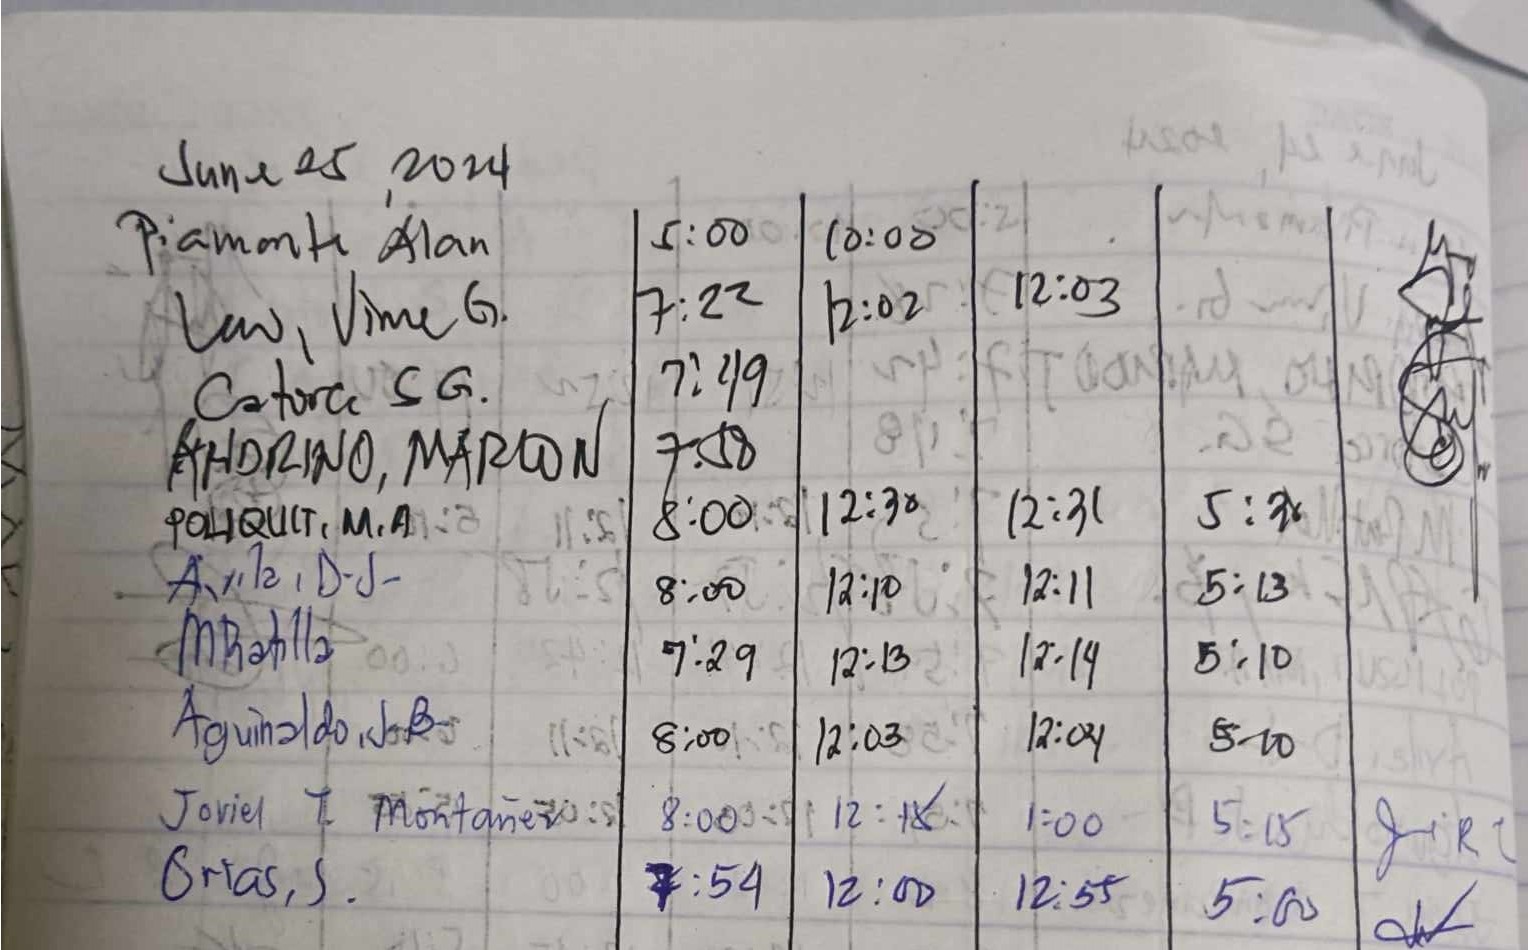 June 25, 2024
Piamonte Alan 5:00 10:00
Law, Vime G. 7:22 12:02 12:03
Catorce S G. 7:49
MARLON 7:58
POLIQUIT, M.A 8:00 12:30 12:31 5:30
D.J. 8:00 12:10 12:11 5:13
7:29 12:13 12:14 5:10
Aguinaldo, J.B 8:00 12:03 12:04 5:10
Joviel T. Montañez 8:00 12:15 1:00 5:15
Orias, S. 7:54 12:00 12:55 5:00